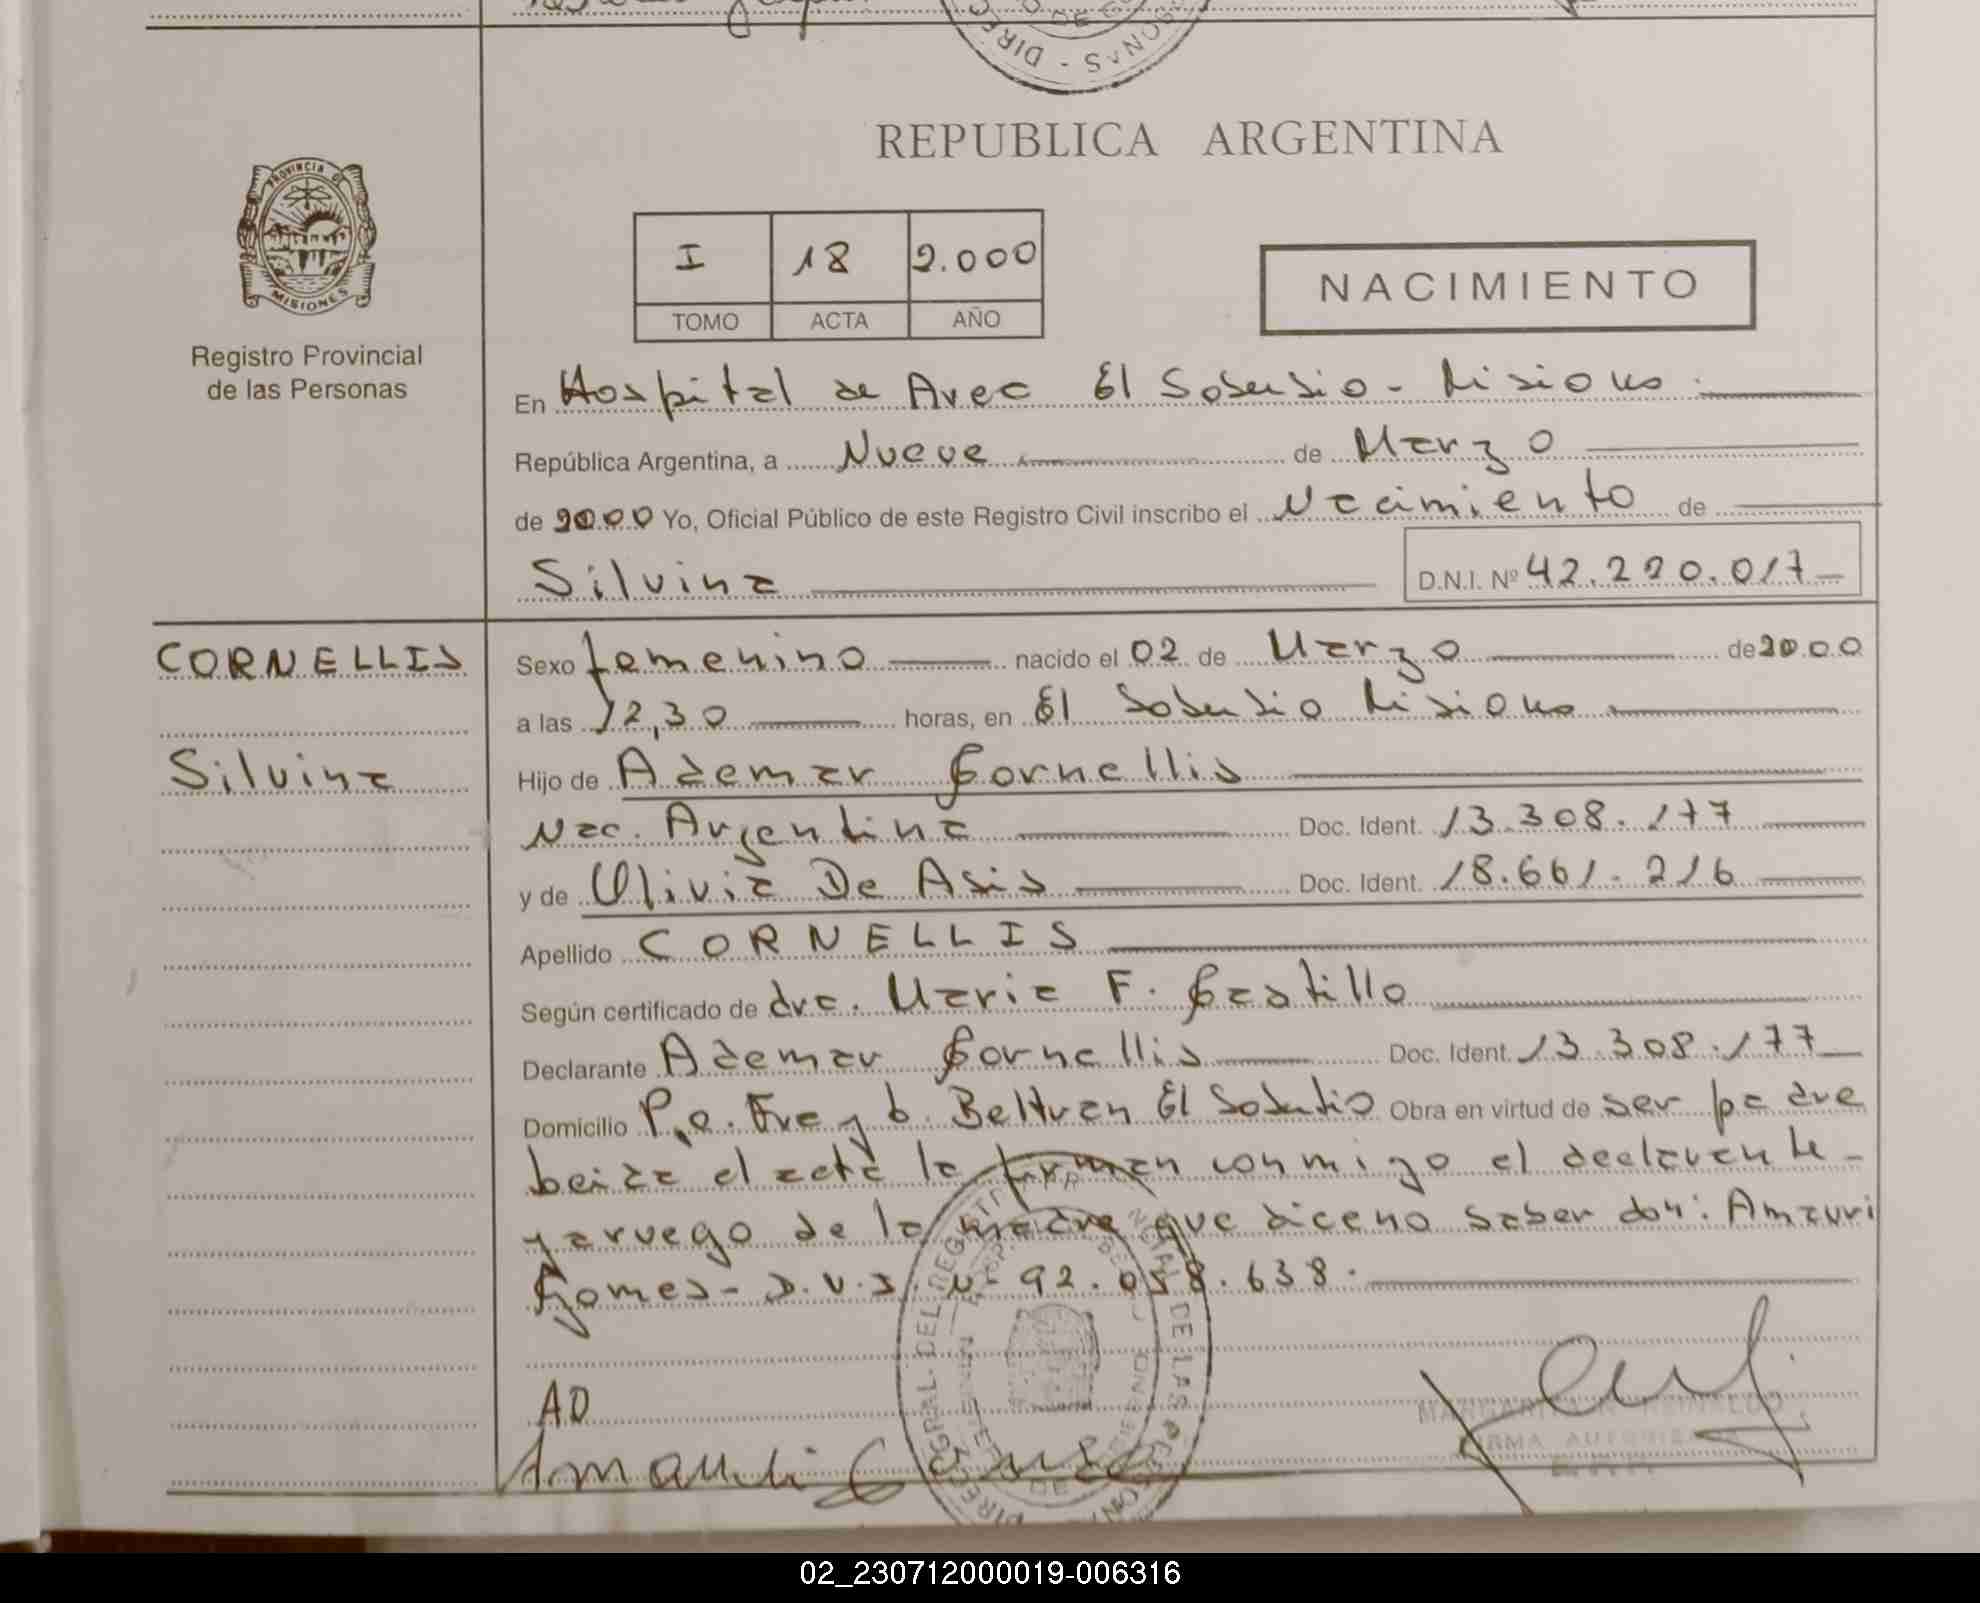 REPUBLICA ARGENTINA
PROVINCIA DE
MISIONES
Registro Provincial
de las Personas
I 18 2.000
TOMO ACTA AÑO
NACIMIENTO
En Hospital de Area El Soberbio - Misiones.
República Argentina, a Nueve de Marzo
de 2000 Yo, Oficial Público de este Registro Civil inscribo el Nacimiento de
Silvina D.N.I. Nº 42.220.017
CORNELLIS
Silvina
Sexo femenino nacido el 02 de Marzo de 2000
a las 12,30 horas, en El Soberbio Misiones
Hijo de Ademar Cornellis
Nac. Argentina Doc. Ident. 13.308.177
y de Olivia De Asis Doc. Ident. 18.661.216
Apellido CORNELLIS
Según certificado de dra. Maria F. Castillo
Declarante Ademar Cornellis Doc. Ident. 13.308.177
Domicilio Fray L. Beltran El Soberbio Obra en virtud de ser padre
el acta la firman conmigo el declarante
y a ruego de la madre que dice no saber don: Amauri
Gomes - Nº 92.058.638.
AD
FIRMA AUTORIZADA
02_230712000019-006316